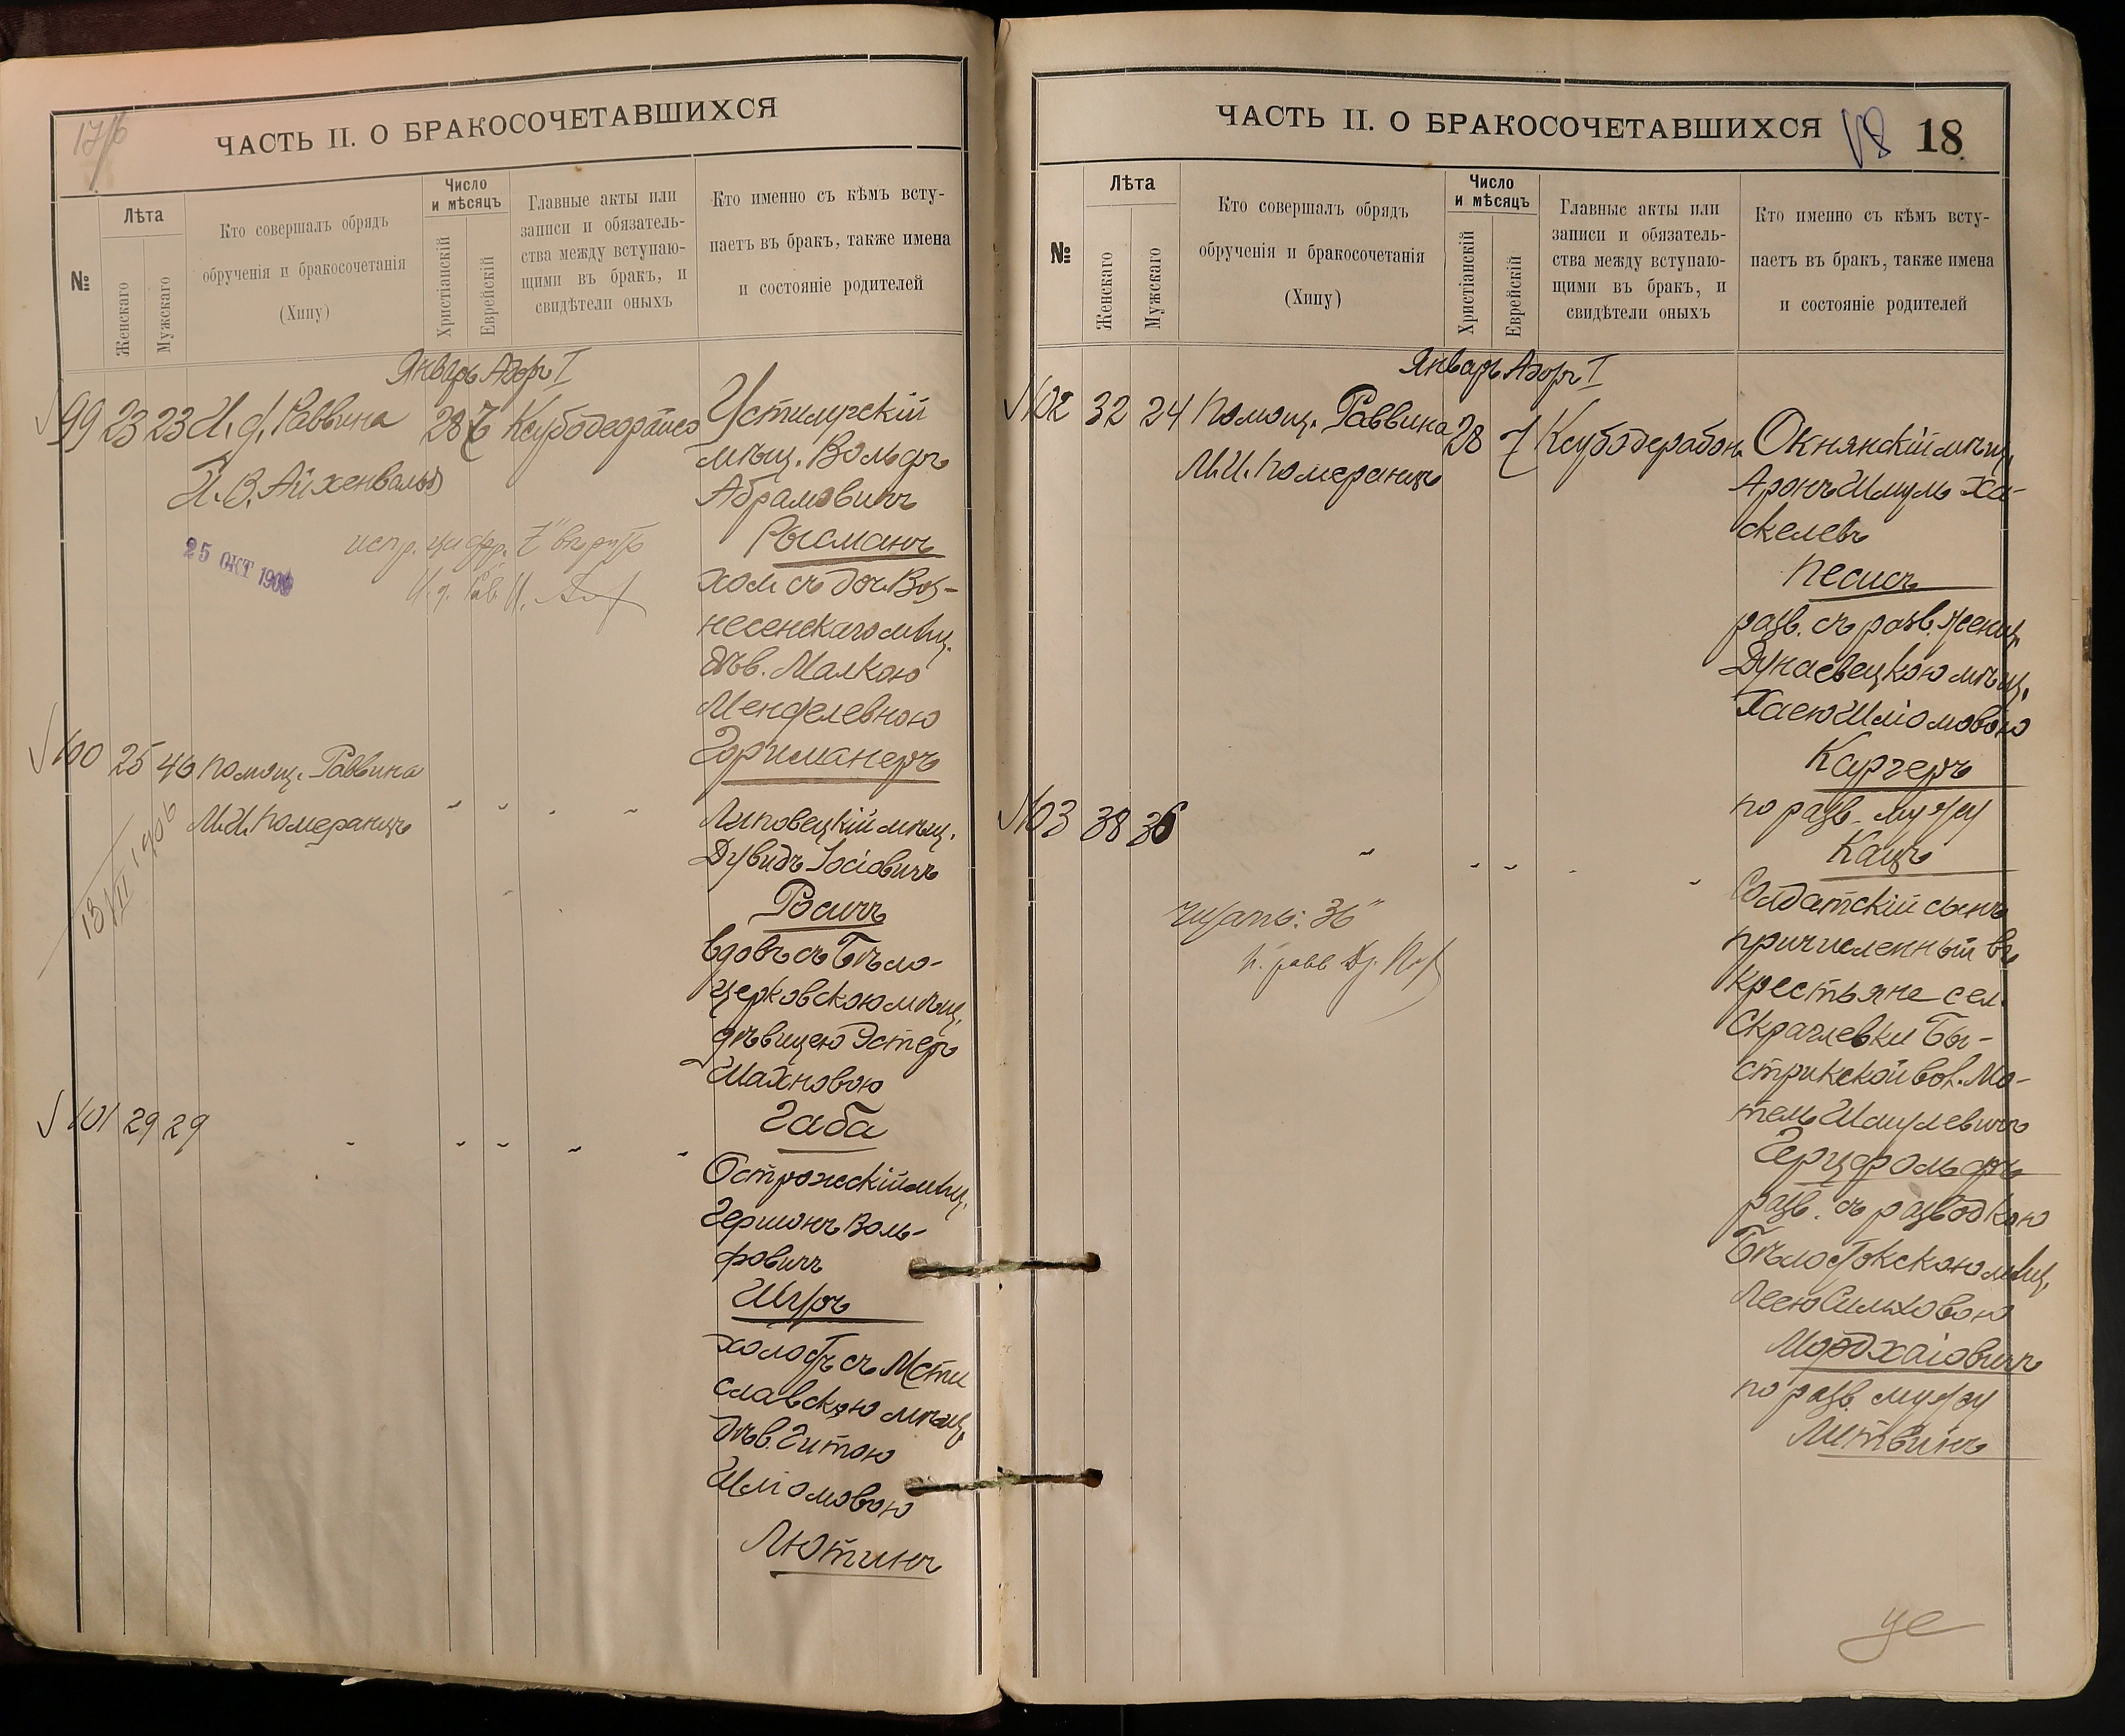 17/б
ЧАСТЬ II. О БРАКОСОЧЕТАВШИХСЯ
№
Лѣта
Женскаго
Мужскаго
Кто совершалъ обрядъ
обрученія и бракосочетанія
(Хипу)
Число
и мѣсяцъ
Христіанскій
Еврейскій
Главные акты или
записи и обязатель-
ства между вступаю-
щими въ бракъ, и
свидѣтели оныхъ
Кто именно съ кѣмъ всту-
паетъ въ бракъ, также имена
и состояніе родителей
Январь Адоръ I
99 23 23 И. д. Раввина 28 7
И. В. Айхенвальд
Устилугскій
мѣщ. Вольфъ
Абрамовичъ
Рысманъ
хол. съ доч. Воз-
несенскаго мѣщ.
дѣв. Малкою
Менделевною
испр. цифр. "7" вѣрить
И. д. Рав. И.
25 ОКТ 190
100 25 46 Помощ. Раввина
М. И. Померанцъ
13/II 1906
Липовецкій мѣщ.
Дувидъ Іосіовичъ
вдовъ съ Бѣло-
церковскою мѣщ.
дѣвицею Эстеръ
Шахновою
Габа
101 29 29
Острожскій мѣщ.
Гершонъ Воль-
фовичъ
холостъ съ Мсти
славскою мѣщ.
дѣв. Гитою
Шліомовою
Лютинъ
ЧАСТЬ II. О БРАКОСОЧЕТАВШИХСЯ
18
18
№
Лѣта
Женскаго
Мужскаго
Кто совершалъ обрядъ
обрученія и бракосочетанія
(Хипу)
Число
и мѣсяцъ
Христіанскій
Еврейскій
Главные акты или
записи и обязатель-
ства между вступаю-
щими въ бракъ, и
свидѣтели оныхъ
Кто именно съ кѣмъ всту-
паетъ въ бракъ, также имена
и состояніе родителей
Январь Адоръ I
102 32 24 Помощ. Раввина 28 7
М. И. Померанцъ
Окнянскій мѣщ.
Аронъ Шмуль Ха-
скелевъ
Песисъ
разв. съ разв. женщ.
Дунаевецкою мѣщ.
Хаею Шліомовою
Каргеръ
по разв. мужу
Кацъ
103 38 36
читать: "36"
Солдатскій сынъ
причисленный въ
крестьяне сел.
Скраглевки Бы-
стрикской вол. Мо-
тель Шмулевичъ
Герцфольдъ
разв. съ разводкою
Бѣлостокскою мѣщ.
Песею Симховою
Мордхаіовичъ
по разв. мужу
Литвинъ